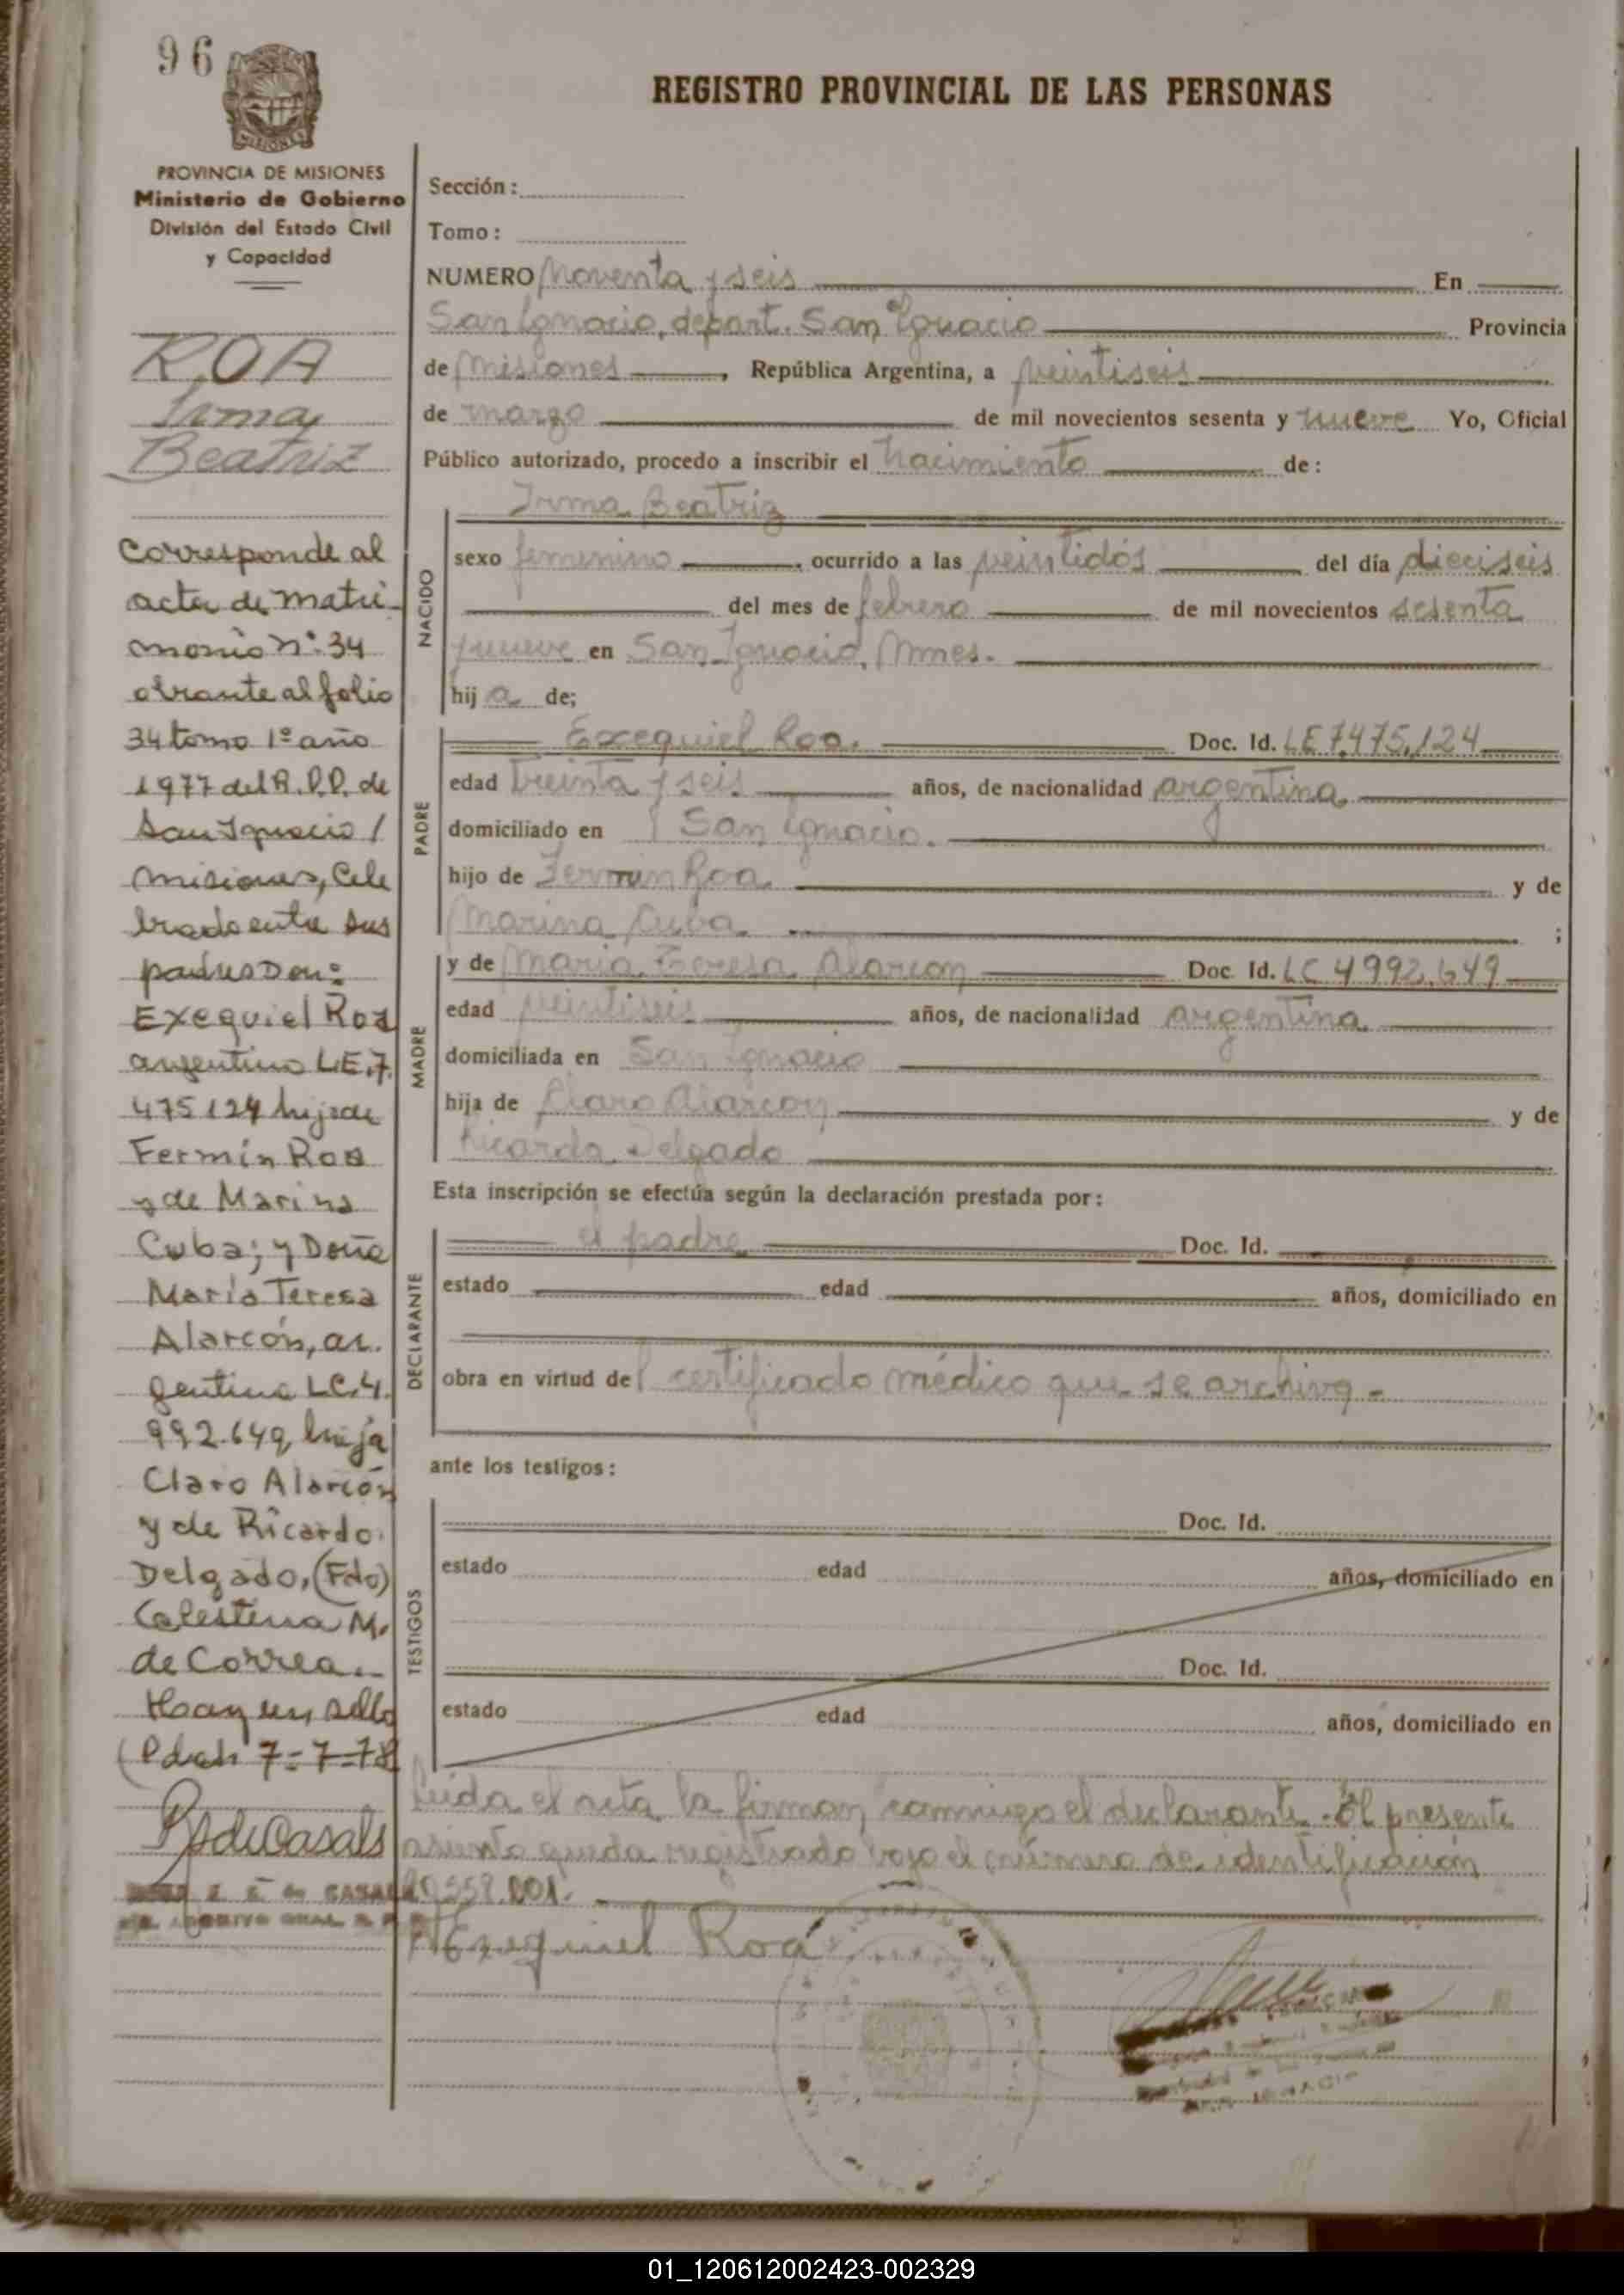 96
MISIONES
PROVINCIA DE MISIONES
Ministerio de Gobierno
División del Estado Civil
y Capacidad
ROA
Irma
Beatriz
Corresponde al
acta de matri-
monio nº 34
obrante al folio
34 tomo 1º año
1977 del R.P.P. de
San Ignacio /
Misiones, Cele
brado entre sus
padres Don:
Exequiel Roa
argentino L.E. 7.
475124 hijo de
Fermín Roa
y de Marina
Cuba; y Doña
María Teresa
Alarcón, ar-
gentina L.C. 4.
992.649, hija
Claro Alarcón
y de Ricardo
Delgado, (Fdo)
Celestina M.
de Correa.-
Hay un sello
7-7-78
de CASALS
REGISTRO PROVINCIAL DE LAS PERSONAS
Sección:
Tomo:
NUMERO Noventa y seis En
San Ignacio, depart. San Ignacio Provincia
de Misiones, República Argentina, a veintiseis
de marzo de mil novecientos sesenta y nueve Yo, Oficial
Público autorizado, procedo a inscribir el nacimiento de:
Irma Beatriz
NACIDO
sexo femenino, ocurrido a las veintidós del día dieciseis
del mes de febrero de mil novecientos sesenta
nueve en San Ignacio, Mnes.
hij a de;
PADRE
Exequiel Roa. Doc. Id. LE 7.475.124
edad treinta y seis años, de nacionalidad argentina
domiciliado en San Ignacio.
hijo de Fermin Roa. y de
Marina Cuba. ;
MADRE
y de Maria Teresa Alarcon Doc. Id. LC 4992.649
edad veintiseis años, de nacionalidad argentina
domiciliada en San Ignacio
hija de Claro Alarcon y de
Ricarda Delgado
Esta inscripción se efectúa según la declaración prestada por:
DECLARANTE
el padre Doc. Id.
estado edad años, domiciliado en
obra en virtud del certificado médico que se archiva.-
ante los testigos:
TESTIGOS
Doc. Id.
estado edad años, domiciliado en
Doc. Id.
estado edad años, domiciliado en
Leida el acta la firman conmigo el declarante. El presente
asiento queda registrado bajo el número de identificación
Exequiel Roa
01_120612002423-002329